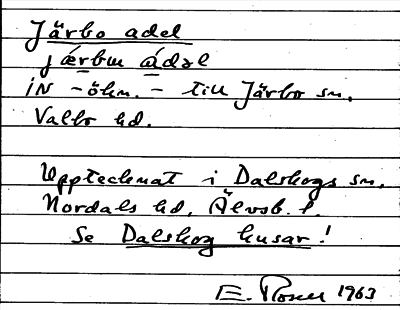 Järbo adel
jǽrbɯ ádəl
IN - öhn. - till Järbo sn.
Valbo hd.
Upptecknat i Dalskogs sn.
Nordals hd. Älvsb. l.
Se Dalskog husar!
E. Rosell 1963